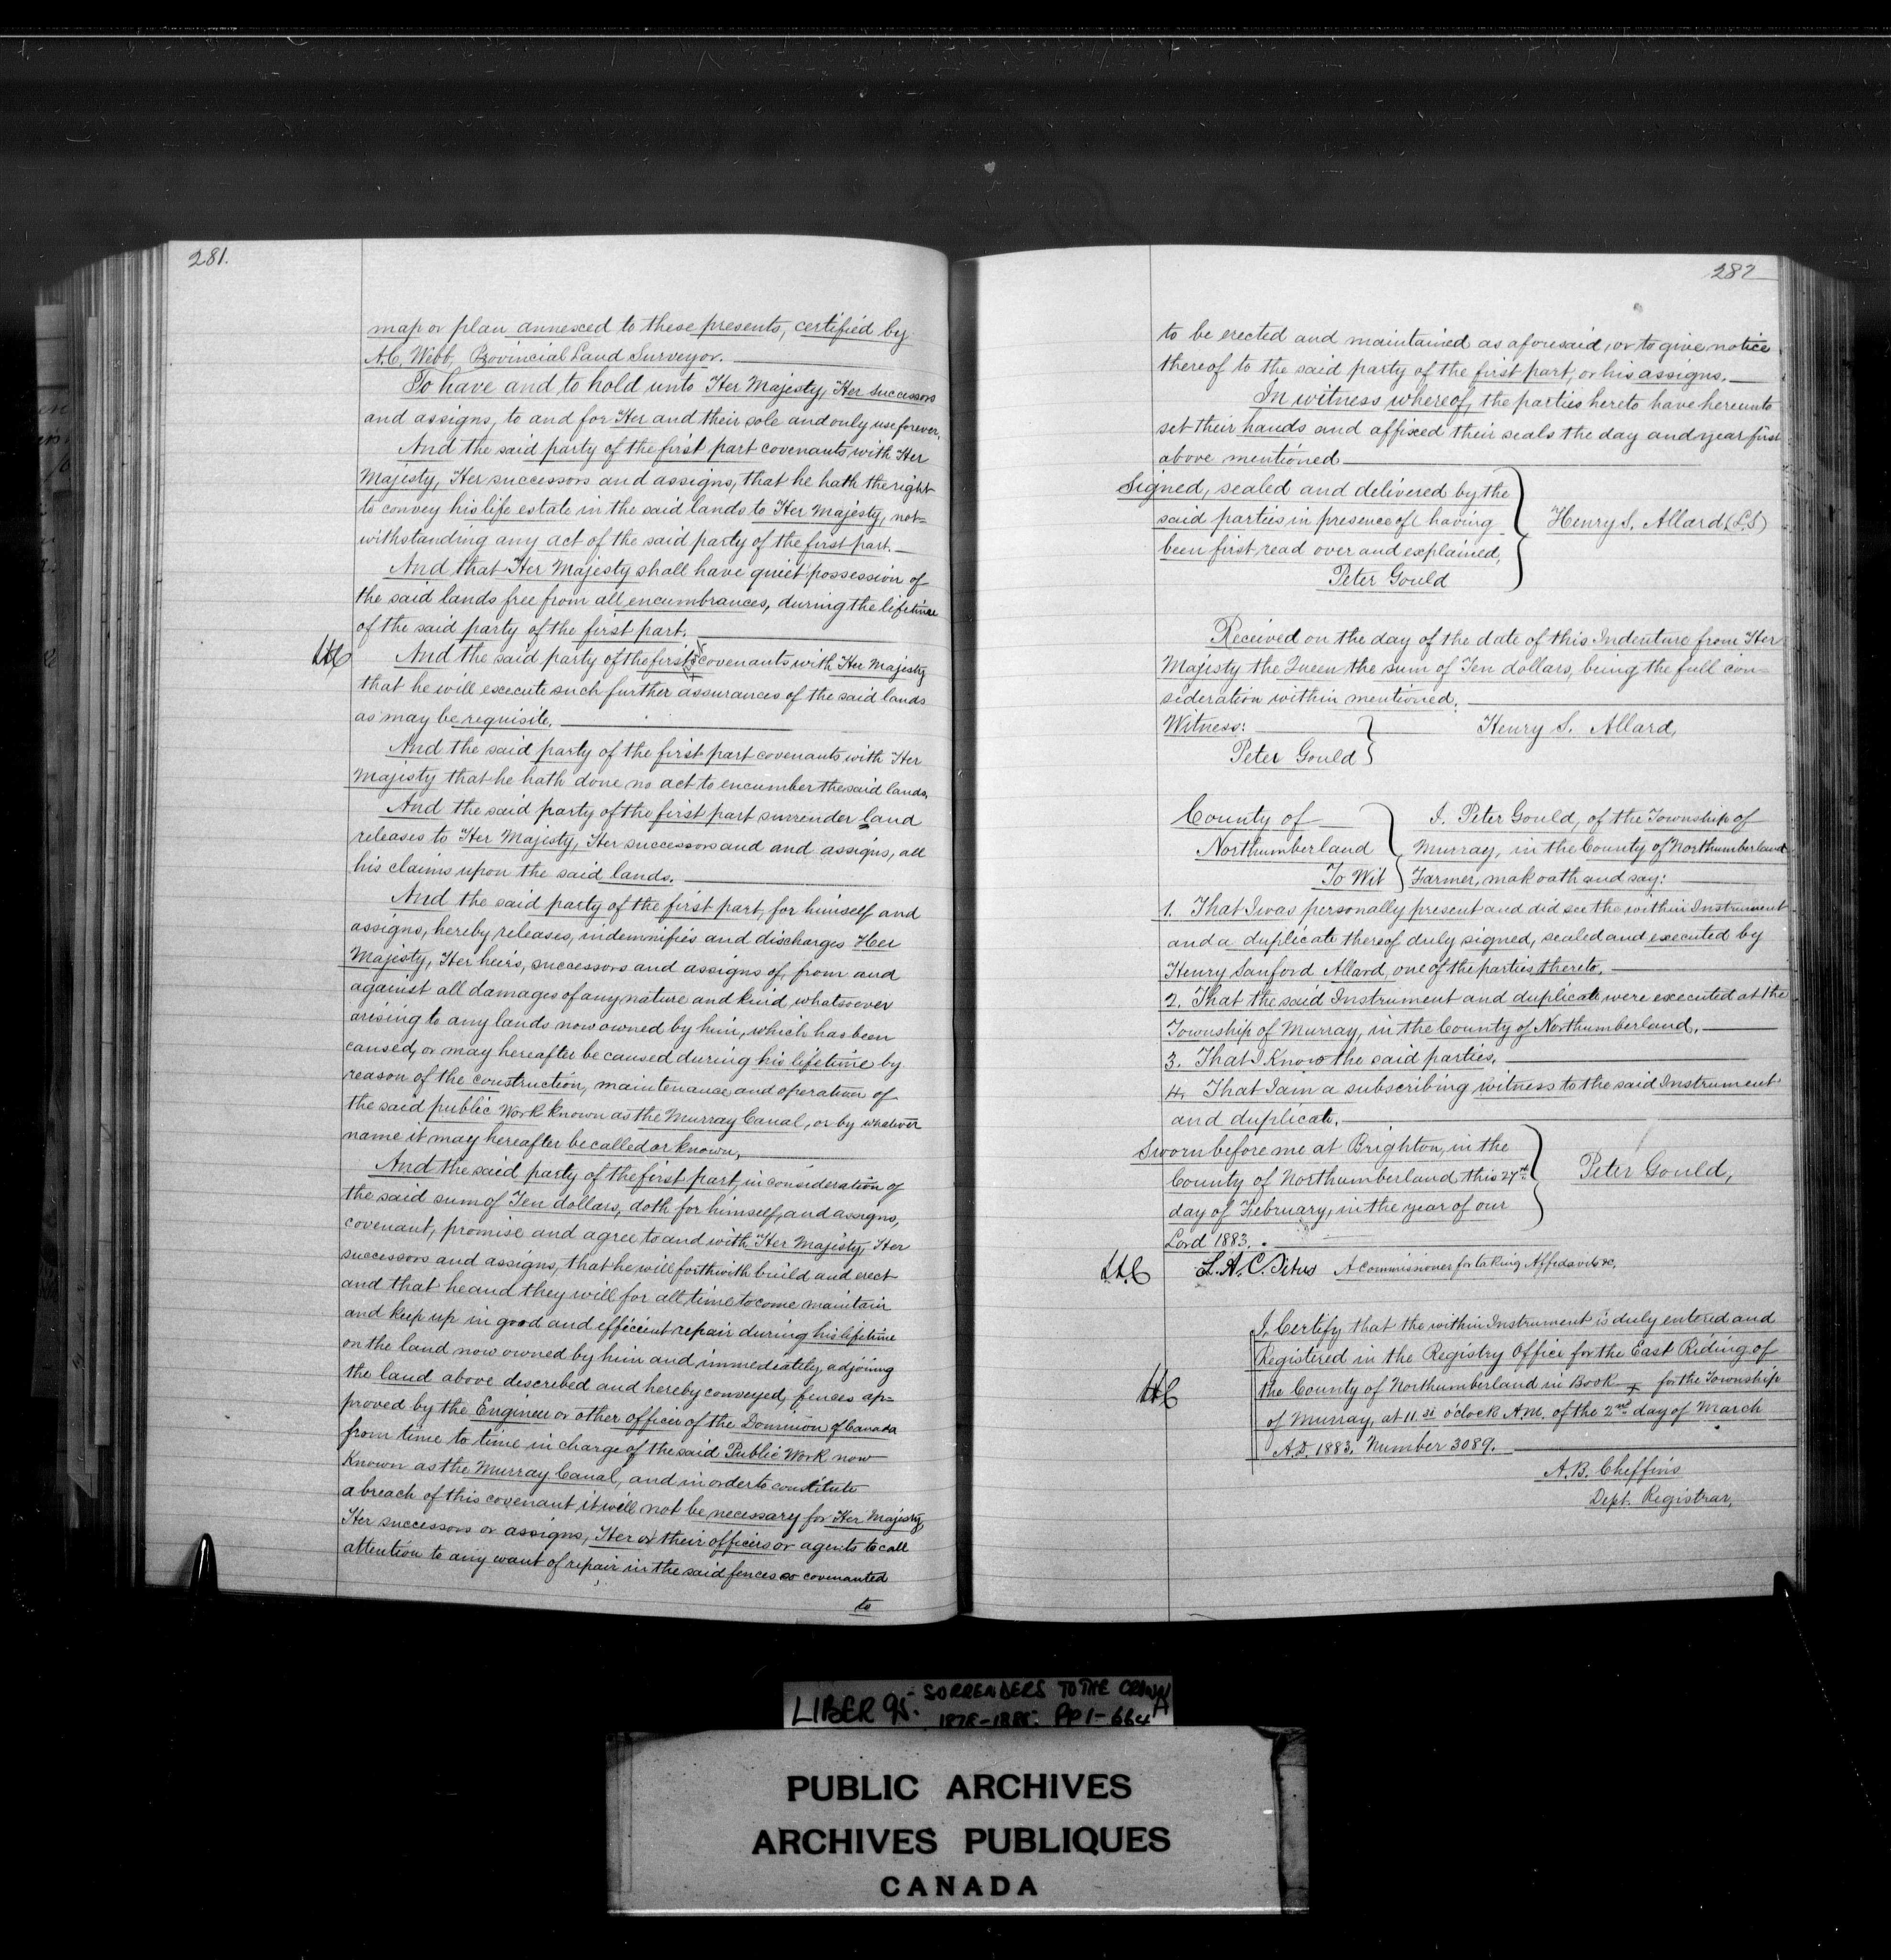 281.
map or plan annexed to these presents, certified by
A.C. Webb, Provincial Land Surveyor.
To have and to hold unto Her Majesty, Her successors
and assigns, to and for Her and their sole and only use forever.
And the said party of the first part covenants with Her
Majesty, Her successors and assigns, that he hath the right
to convey his life estate in the said lands to Her Majesty, not=
withstanding any act of the said party of the first part.
And that Her Majesty shall have quiet possession of
the said lands free from all encumbrances, during the lifetime
of the said party of the first part.
And the said party of the first part covenants with Her Majesty
that he will execute such further assurances of the said lands
as may be requisite.
And the said party of the first part covenants with Her
Majesty that he hath done no act to encumber the said lands.
And the said party of the first part surrender land
releases to Her Majesty, Her successors and and assigns, all
his claims upon the said lands.
And the said party of the first part, for himself and
assigns, hereby releases, indemnifies and discharges Her
Majesty, Her heirs, successors and assigns of, from and
against all damages of any nature and kind whatsoever
arising to any lands now owned by him, which has been
caused, or may hereafter be caused during his lifetime by
reason of the construction, maintenance and operation of
the said public Work known as the Murray Canal, or by whatever
name it may hereafter be called or known.
And the said party of the first part, in consideration of
the said sum of Ten dollars, doth for himself, and assigns,
covenant, promise and agree to and with Her Majesty, Her
successors and assigns, that he will forthwith build and erect
and that he and they will for all time to come maintain
and keep up in good and efficient repair during his lifetime
on the land now owned by him and immediately adjoining
the land above described and hereby conveyed, fences ap=
proved by the Engineer or other officer of the Dominion of Canada
from time to time in charge of the said Public Work now
Known as the Murray Canal, and in order to constitute
a breach of this covenant it will not be necessary for Her Majesty,
Her successors or assigns, Her or their officers or agents to call
attention to any want of repair in the said fences so covenanted
to
282
to be erected and maintained as aforesaid, or to give notice
thereof to the said party of the first part, or his assigns.
In witness whereof, the parties hereto have hereunto
set their hands and affixed their seals the day and year first
above mentioned
Signed, sealed and delivered by the
said parties in presence of (having
been first read over and explained,
Peter Gould
Henry S. Allard (L.S)
Received on the day of the date of this Indenture from Her
Majesty the Queen the sum of Ten dollars, being the full con=
sideration within mentioned.
Witness: Henry S. Allard,
Peter Gould
County of
Northumberland
To Wit
I, Peter Gould, of the Township of
Murray, in the County of Northumberland
Farmer, mak oath and say:
1. That I was personally present and did see the within Instrument
and a duplicate thereof duly signed, sealed and executed by
Henry Sanford Allard, one of the parties thereto.
2. That the said Instrument and duplicate were executed at the
Township of Murray, in the County of Northumberland.
3. That I Know the said parties.
4. That I am a subscribing witness to the said Instrument
and duplicate.
Sworn before me at Brighton, in the
County of Northumberland this 27th
day of February, in the year of our
Lord 1883.
Peter Gould,
L.A.C. Titus A Commissioner for taking Affedavits &c.
I, Certify that the within Instrument is duly entered and
Registered in the Registry Office for the East Riding of
the County of Northumberland in Book for the Township
of Murray, at 11. oclock A.M. of the 2nd day of March
A.D. 1883. Number 3089.
A.B. Cheffins
Dept. Registrar,
LIBER 95. SORRENDERS TO THE CROWN
PP 1-664
PUBLIC ARCHIVES
ARCHIVES PUBLIQUES
CANADA